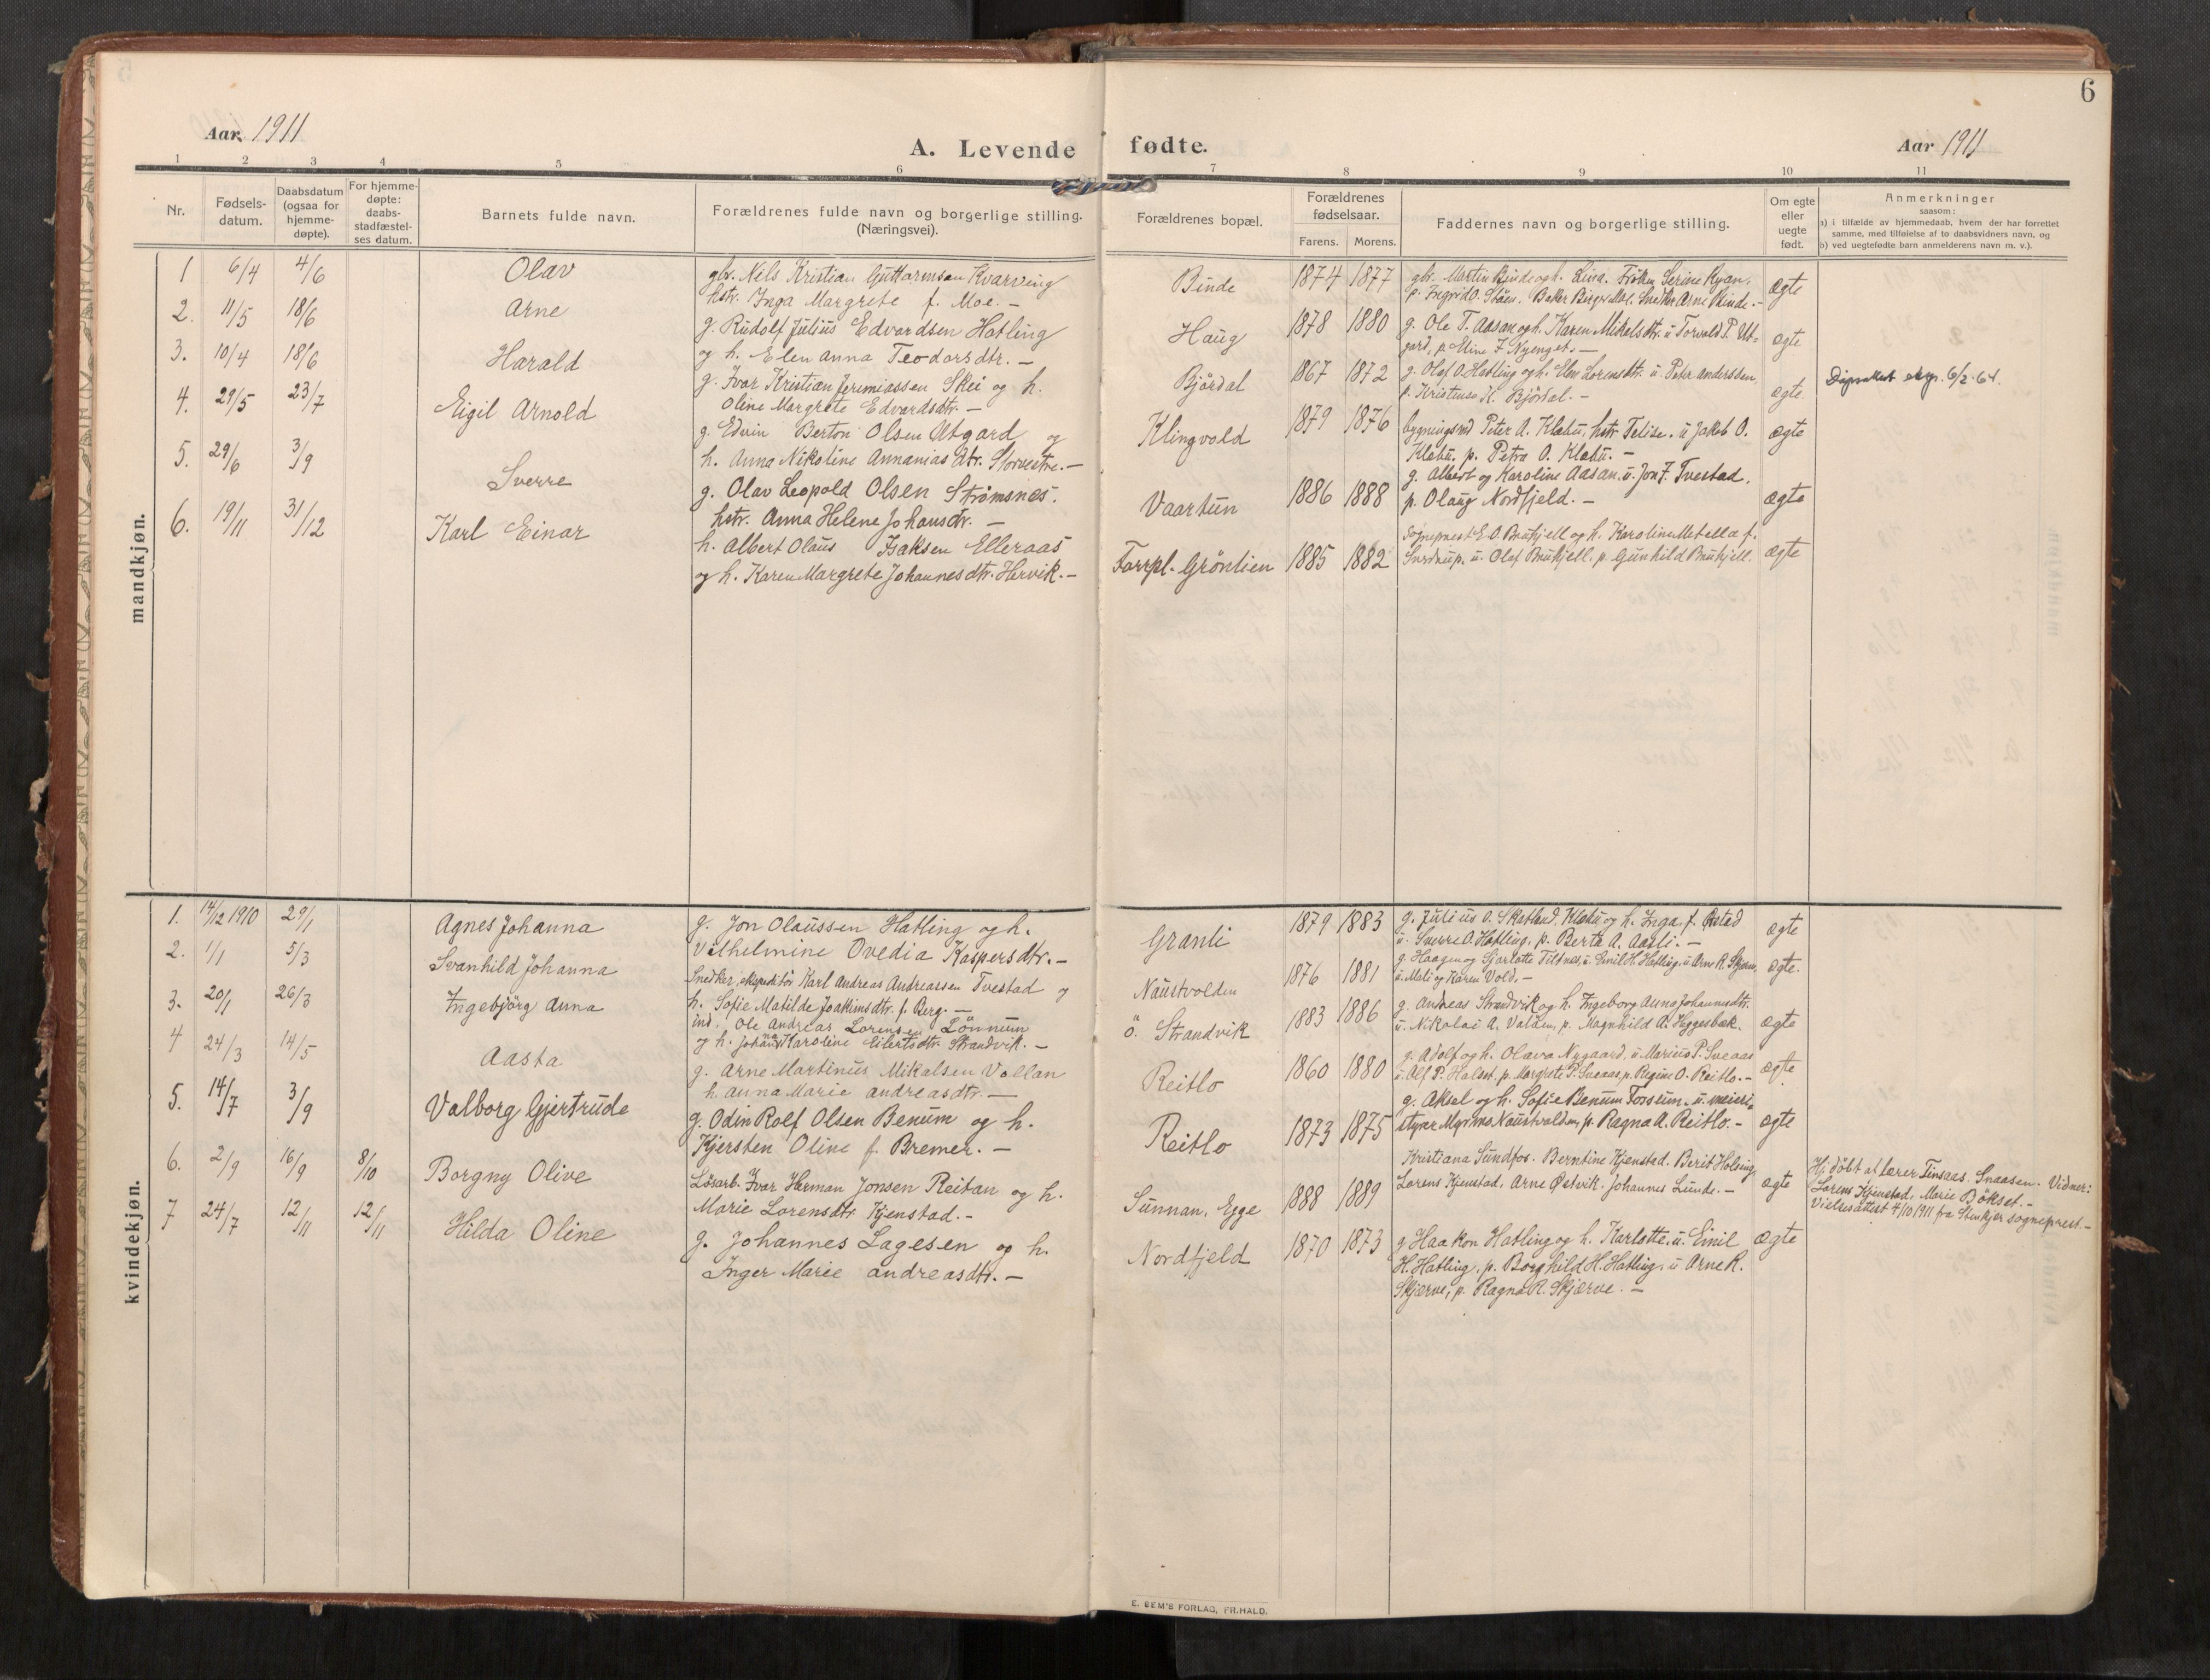 6
Aar 1911
A. Levende fødte.
Aar 1911
1 2 3 4 5 6 7 8 9 10 11
Nr.
Fødsels-
datum.
Daabsdatum
(ogsaa for
hjemme-
døpte).
For hjemme-
døpte:
daabs-
stadfæstel-
ses datum.
Barnets fulde navn.
Forældrenes fulde navn og borgerlige stilling.
(Næringsvei).
Forældrenes bopæl.
Forældrenes
fødselsaar.
Farens. Morens.
Faddernes navn og borgerlige stilling.
Om egte
eller
uegte
født.
Anmerkninger
saasom:
a) i tilfælde av hjemmedaab, hvem der har forrettet
samme, med tilføielse af to daabsvidners navn, og
b) ved uegtefødte barn anmelderens navn m. v.).
mandkjøn.
1 6/4 4/6 Olav
gbr. Nils Kristian Guttormsen Kvarving
hstr. Inga Margrete f. Moe. —
Binde 1874 1877
gbr. Martin Binde og h. Lina. Frøken Serine Ryan,
p. Ingrid O. Støen. Baker Birger Moe. Snedker Arne Binde. —
ægte
2. 11/5 18/6 Arne
g. Rudolf Julius Edvardsen Hatling
og h. Elen Anna Teodorsdtr. —
Haug 1878 1880
g. Ole T. Aasan og h. Karen Mikalsdtr. u. Torvald P. Ut-
gard, p. Eline F. Nyenget. —
ægte
3. 10/4 18/6 Harald
g. Ivar Kristian Jeremiassen Skei og h.
Oline Margrete Edvardsdtr. —
Bjørdal 1867 1872
g. Olaf O. Hatling og h. Elen Lorensdtr. u. Peter Anderssen,
p. Kristense K. Bjørdal. —
ægte.
6/2-64.
4. 29/5 23/7 Eigil Arnold
g. Edvin Berton Olsen Utgard og
h. Anna Nikoline Annaniasdtr. Storvestre. —
Klingvold 1879 1876
bygningsmd Peter A. Klæbu, hstr Telise. u. Jakob O.
Klæbu. p. Petra O. Klæbu. —
ægte
5. 29/6 3/9 Sverre
g. Olav Leopold Olsen Strømsnes.
hstr. Anna Helene Johansdtr. —
Vaartun 1886 1888
g. Albert og Karoline Aasan. u. Jon J. Tvestad.
p. Olaug Nordfjeld. —
ægte
6. 19/11 31/12 Karl Einar
h. Albert Olaus Isaksen Elleraas
og h. Karen Margrete Johannesdtr. Hervik. —
Forrpl. Grönlien 1885 1882
Sogneprest E. O. Bruhjell og h. Karoline Metella f.
Sverdrup. u. Olaf Bruhjell. p. Gunhild Bruhjell.
ægte
kvindekjøn.
1. 14/12 1910 29/1 Agnes Johanna
g. Jon Olaussen Hatling og h.
Vilhelmine Ovedia Kaspersdtr. —
Granli 1879 1883
g. Julius O. Skatland Klæbu og h. Inga, f. Østad
u. Sverre O. Hatling, p. Berta A. Aasli. —
ægte
2. 1/1 5/3 Svanhild Johanna
Snedker, ekspeditör Karl Andreas Andreassen Tvestad og
h. Sofie Matilde Joakimsdtr. f. Berg. —
Naustvolden 1876 1881
g. Haagen og Sjarlotte Tildnes, u. Emil H. Hatling, u. Arne R. Skjerve,
u. Mali og Karen Vold. —
ægte.
3. 20/1 26/3 Ingebjörg Anna
ind. Ole Andreas Lorensen Lönnum
og h. Johanna Karoline Eilertsdtr. Strandvik. —
ö. Strandvik 1883 1886
g. Andreas Strandvik og h. Ingeborg Anna Johannesdtr.
u. Nikolai A. Valden, p. Magnhild A. Heggesbæk.
ægte
4 24/3 14/5 Aasta
g. Arne Martinus Mikalsen Vollan
h. Anna Marie Andreasdtr. —
Reitlo 1860 1880
g. Adolf og h. Olava Nygaard, u. Marius P. Sveaas
u. Alf P. Halset. p. Margrete P. Sveaas, p. Regine O. Reitlo. —
ægte
5. 14/7 3/9 Valborg Gjertrude
g. Odin Rolf Olsen Benum og h.
Kjersten Oline f. Bremer. —
Reitlo 1873 1875
g. Aksel og h. Sofie Benum Forssun. u. meieri-
styrer Myrmo Naustvolden, p. Ragna A. Reitlo. —
ægte
6. 2/9 16/9 8/10 Borgny Olive
Lösarb. Ivar Herman Jonsen Reitan og h.
Marie Lorensdtr Kjenstad. —
Sunnan, Egge 1888 1889
Kristiana Sundfos. Berntine Kjenstad. Berit Holsing
Lorens Kjenstad, Arne Østvik. Johannes Lunde. —
ægte
Hj. döbt af lærer Tinsaas. Snaasen. Vidner:
Lorens Kjenstad, Marie Bökset. —
Vielsesattest 4/10 1911 fra Stenkjer sogneprest. —
7 24/7 12/11 12/11 Hilda Oline
g. Johannes Lagesen og h.
Inger Marie Andreasdtr. —
Nordfjeld 1870 1873
g Haakon Hatling og h. Karlotte. u. Emil
H. Hatling. p. Borghild H. Hatling. u Arne R.
Skjærve, p. Ragna R. Skjærve. —
ægte
E. SEM'S FORLAG, FR.HALD.